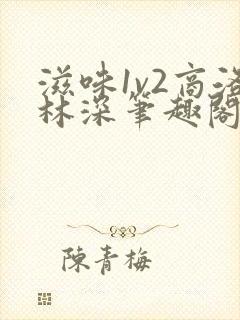 滋味1v2高洛
林深笔趣阁
陳青梅